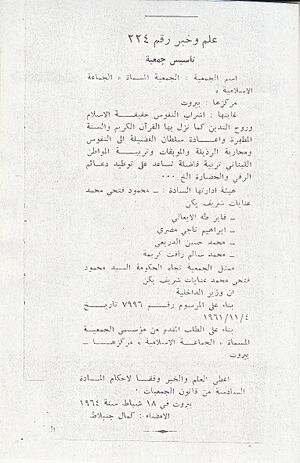 علم وخبر رقم ٢٢٤
تاسيس جمعية
اسم الجمعية : الجمعية المسماة « الجماعة
الاسلامية »
مركزها : بيروت
غايتها : اشراب النفوس حقيقة الاسلام
وروح التدين كما نزل بها القرآن الكريم والسنة
المطهرة واعادة سلطان الفضيلة الى النفوس
ومحاربة الرذيلة والموبقات وتربية المواطن
اللبناني تربية فاضلة تساعد على توطيد دعائم
الرقي والحضارة الخ ...
هيئة ادارتها السادة : ـ محمود فتحي محمد
عنايات شريف يكن
ـ فايز طه الايعالي
ـ ابراهيم ناجي مصري
ـ محمد حسن الدريعي
ـ محمد سالم رأفت كريمة
ممثل الجمعية تجاه الحكومة السيد محمود
فتحي محمد عنايات شريف يكن
ان وزير الداخلية
بناء على المرسوم رقم ٧٩٩٦ تاريخ
١٩٦١/١١/٤
بناء على الطلب المقدم من مؤسسي الجمعية
المسماة « الجماعة الاسلامية » مركزها ـ
بيروت
اعطي العلم والخبر وفقا لاحكام المادة
السادسة من قانون الجمعيات
بيروت في ١٨ شباط سنة ١٩٦٤
الامضاء : كمال جنبلاط